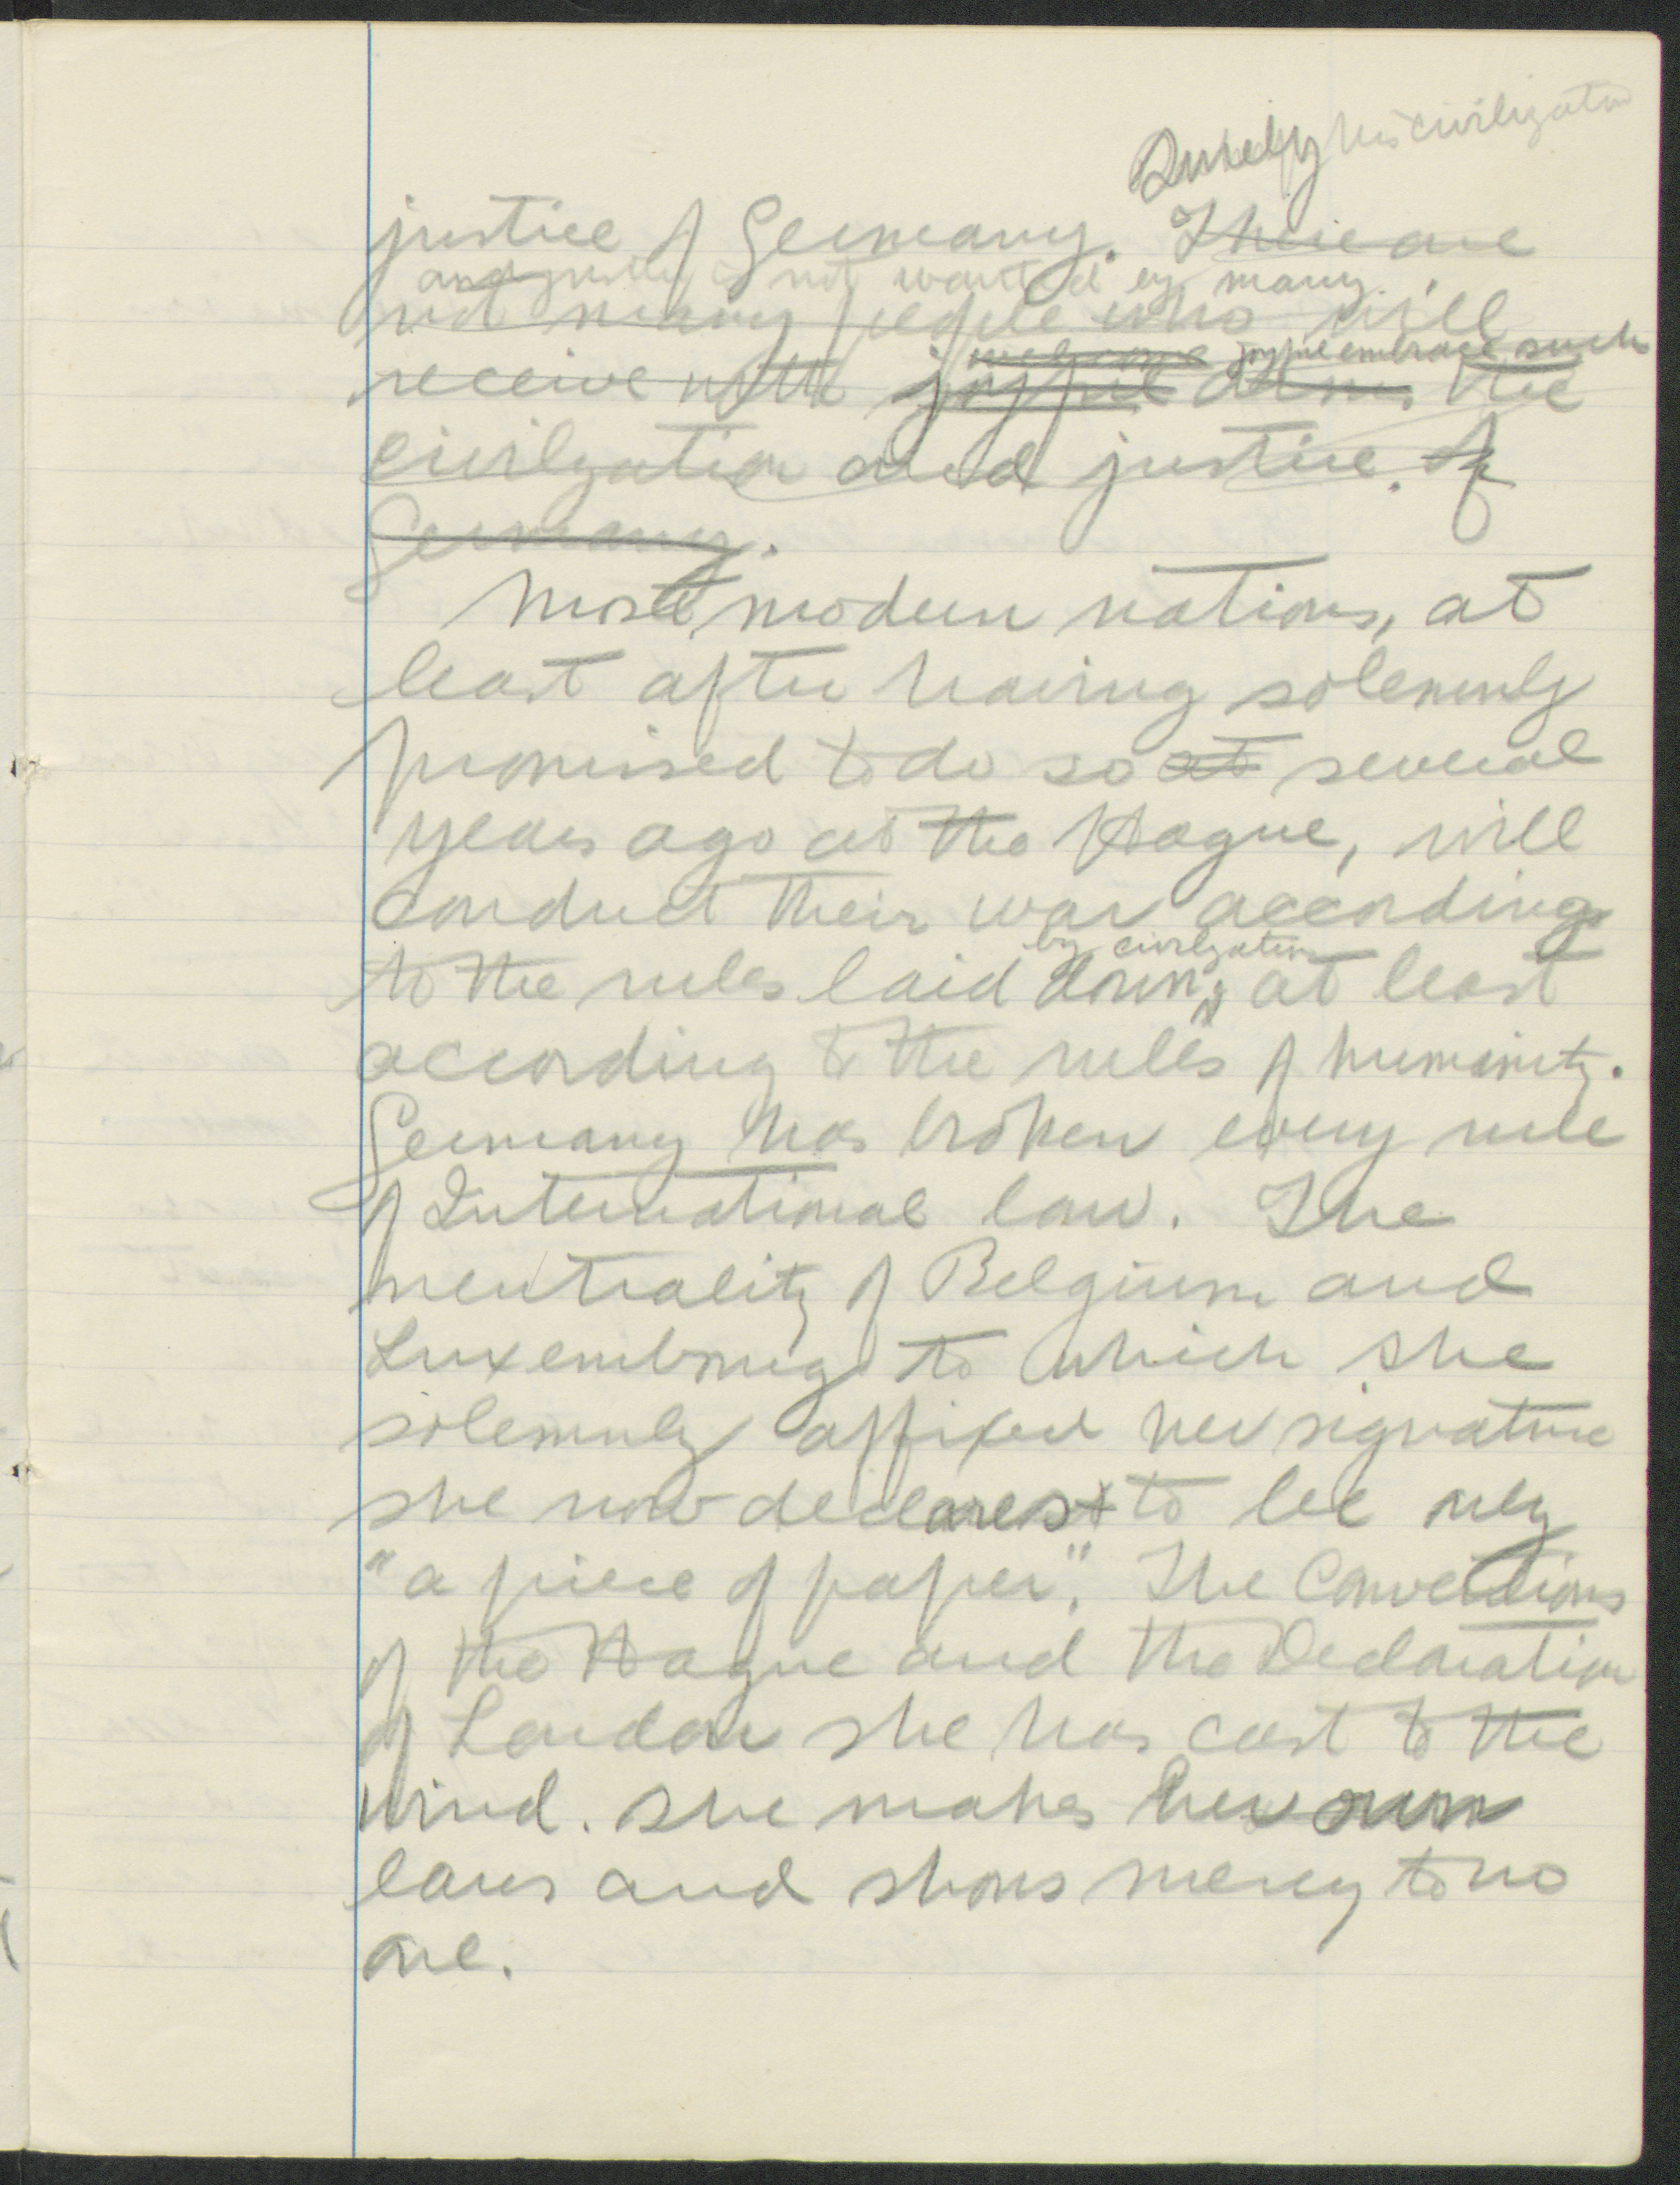 Surely his civilization
justice of Germany. There are
and justice is not wanted by many.
not many people who will
welcome joyful embrace such
receive with joyful arms the
civilization and justice. of
Germany.
Most modern nations, at
least after having solemnly
promised to do so at several
years ago at the Hague, will
conduct their war according
by civilization
to the rules laid down, at least
according to the rules of humanity.
Germany has broken every rule
of International law. The
neutrality of Belgium and
Luxembourg to which she
solemnly affixed her signature
she now declares to be only
"a piece of paper". The Conventions
of the Hague and the Declaration
of London she has cast to the
wind. She makes her own
laws and shows mercy to no
one.